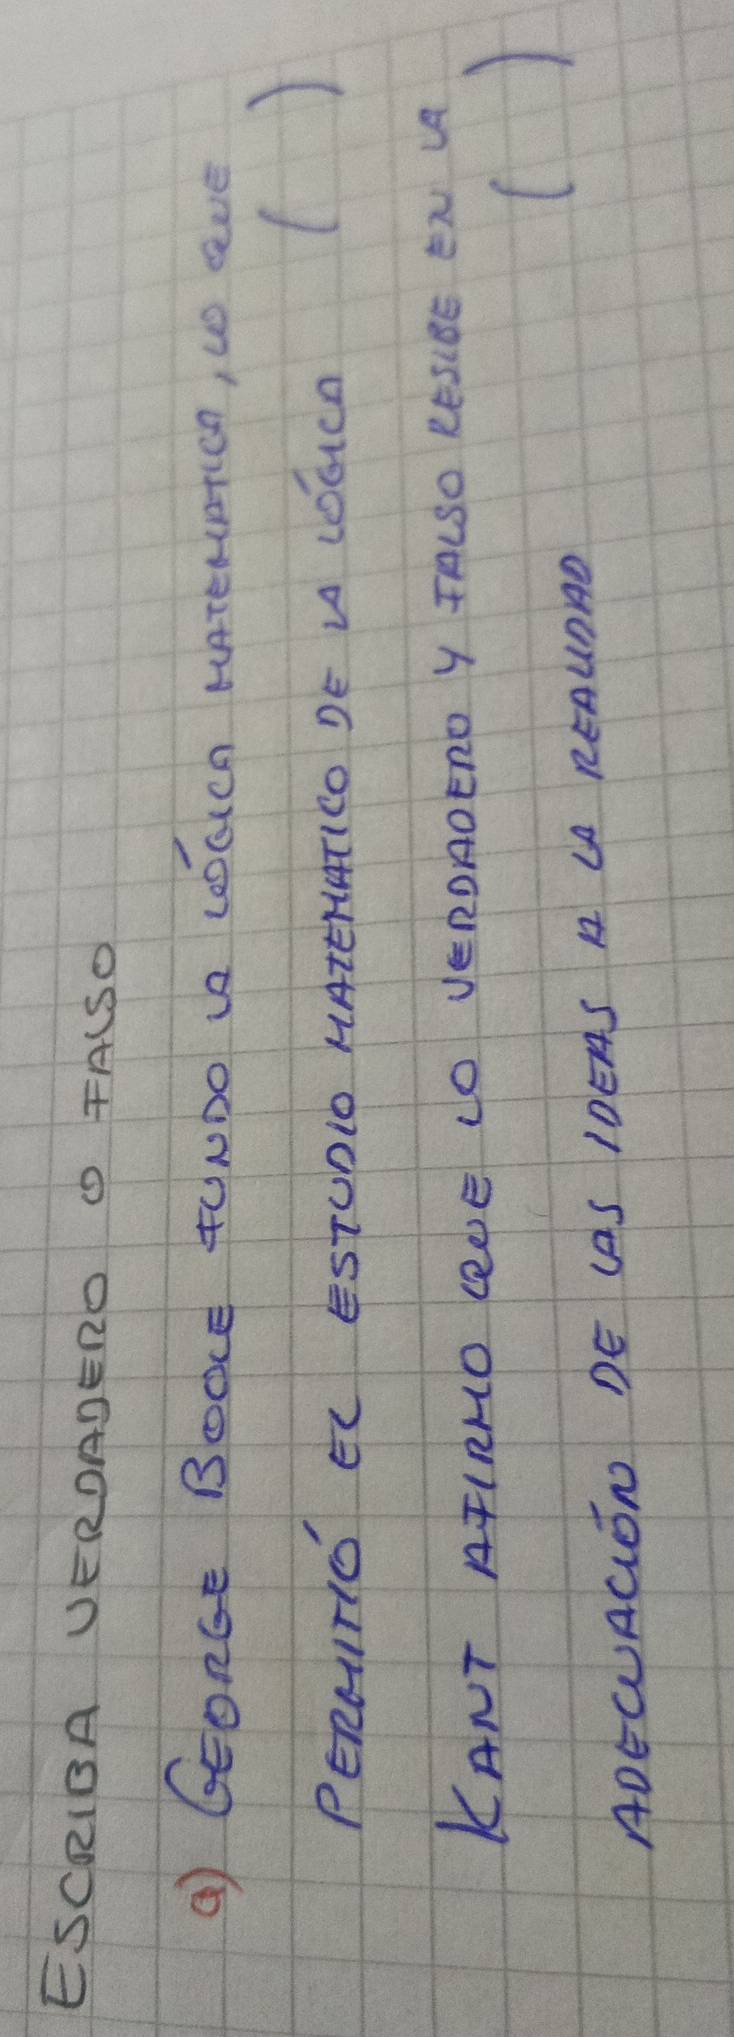 ESCRIBA VERDADERO O FALSO
a) GEORGE BOOLE FUNDO LA LÓGICA MATEMATICA, LO QUE
PERMITIÓ EL ESTUDIO MATEMATICO DE LA LÓGICA ( )
KANT AFIRMO QUE LO VERDADERO Y FALSO RESIBE EN LA
ADECUACIÓN DE LAS IDEAS A LA REALIDAD ( )